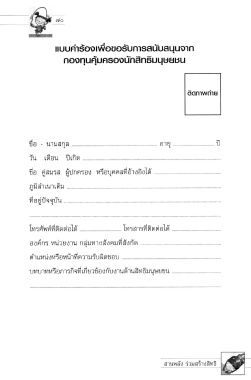 ๗๐
แบบคำร้องเพื่อขอรับการสนับสนุนจาก
กองทุนคุ้มครองนักสิทธิมนุษยชน
ติดภาพถ่าย
ชื่อ - นามสกุล ........ อายุ ........ ปี
วัน เดือน ปีเกิด ........
ชื่อ คู่สมรส ผู้ปกครอง หรือบุคคลที่อ้างถึงได้ ........
ภูมิลำเนาเดิม ........
ที่อยู่ปัจจุบัน ........
โทรศัพท์ที่ติดต่อได้ ........ โทรสารที่ติดต่อได้ ........
องค์กร หน่วยงาน กลุ่มทางสังคมที่สังกัด ........
ตำแหน่งหรือหน้าที่ความรับผิดชอบ ........
บทบาทหรือภารกิจที่เกี่ยวข้องกับงานด้านสิทธิมนุษยชน ........
สานพลัง ร่วมสร้างสิทธิ